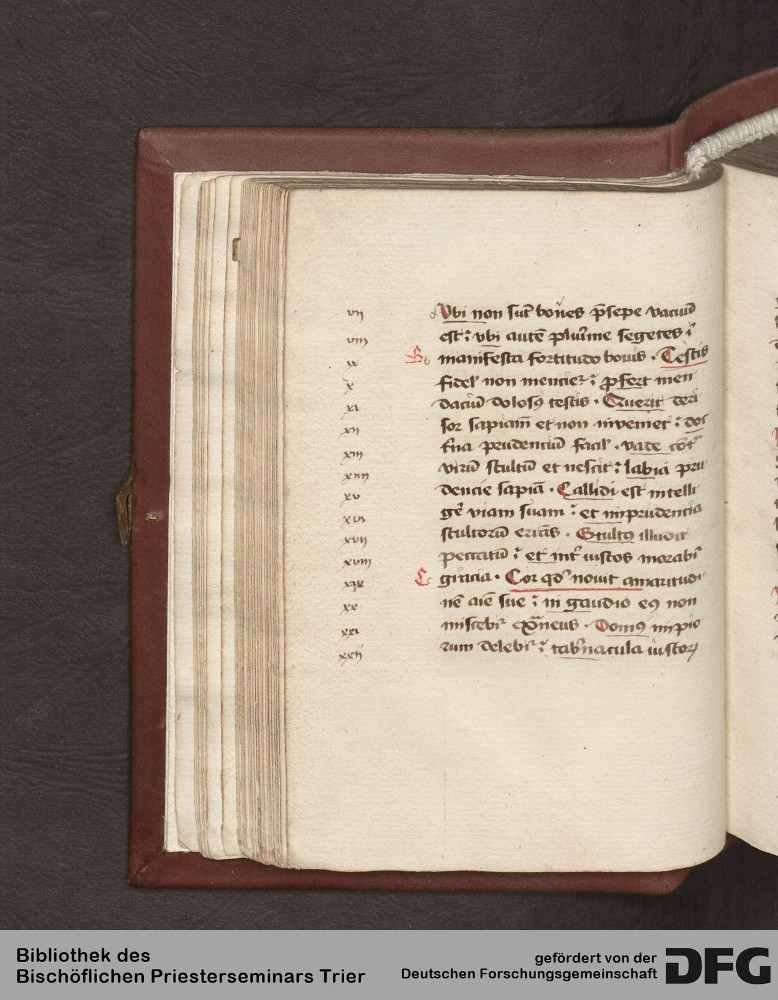 vij
viij
ix
x
xi
xij
xiij
xiiij
xv
xvi
xvij
xviij
xix
xx
xxi
xxij
Vbi non sut̄ boues p̄sepe vacuū
est : vbi autē plurīme segetes ī
B manifesta fortitudo bouis . Testis
fidelꝭ non mencieꝛ : ꝓfert men
daciū dolosꝯ testis . Querit deri
sor sapiam̄ et non inveniet : doc
trina prudenciū facilꝭ . vade cōtͣ
virū stultū et nescit : labia pru
dencie sapiā . Callidi est intelli
geˀ viam suam : et inprudencia
stultorū errās . Stultꝯ illudit
peccatū : et intˀ iustos morabiͬ
C gracia . Cor qdˀ nouit amaritudi
nē aīe sue : in gaudio eꝯ non
miscebiͬ exͣneus . Domꝯ impio
rum delebiͬ : tabˀnacula iustoꝝ
Bibliothek des
Bischöflichen Priesterseminars Trier
gefördert von der
Deutschen Forschungsgemeinschaft
DFG